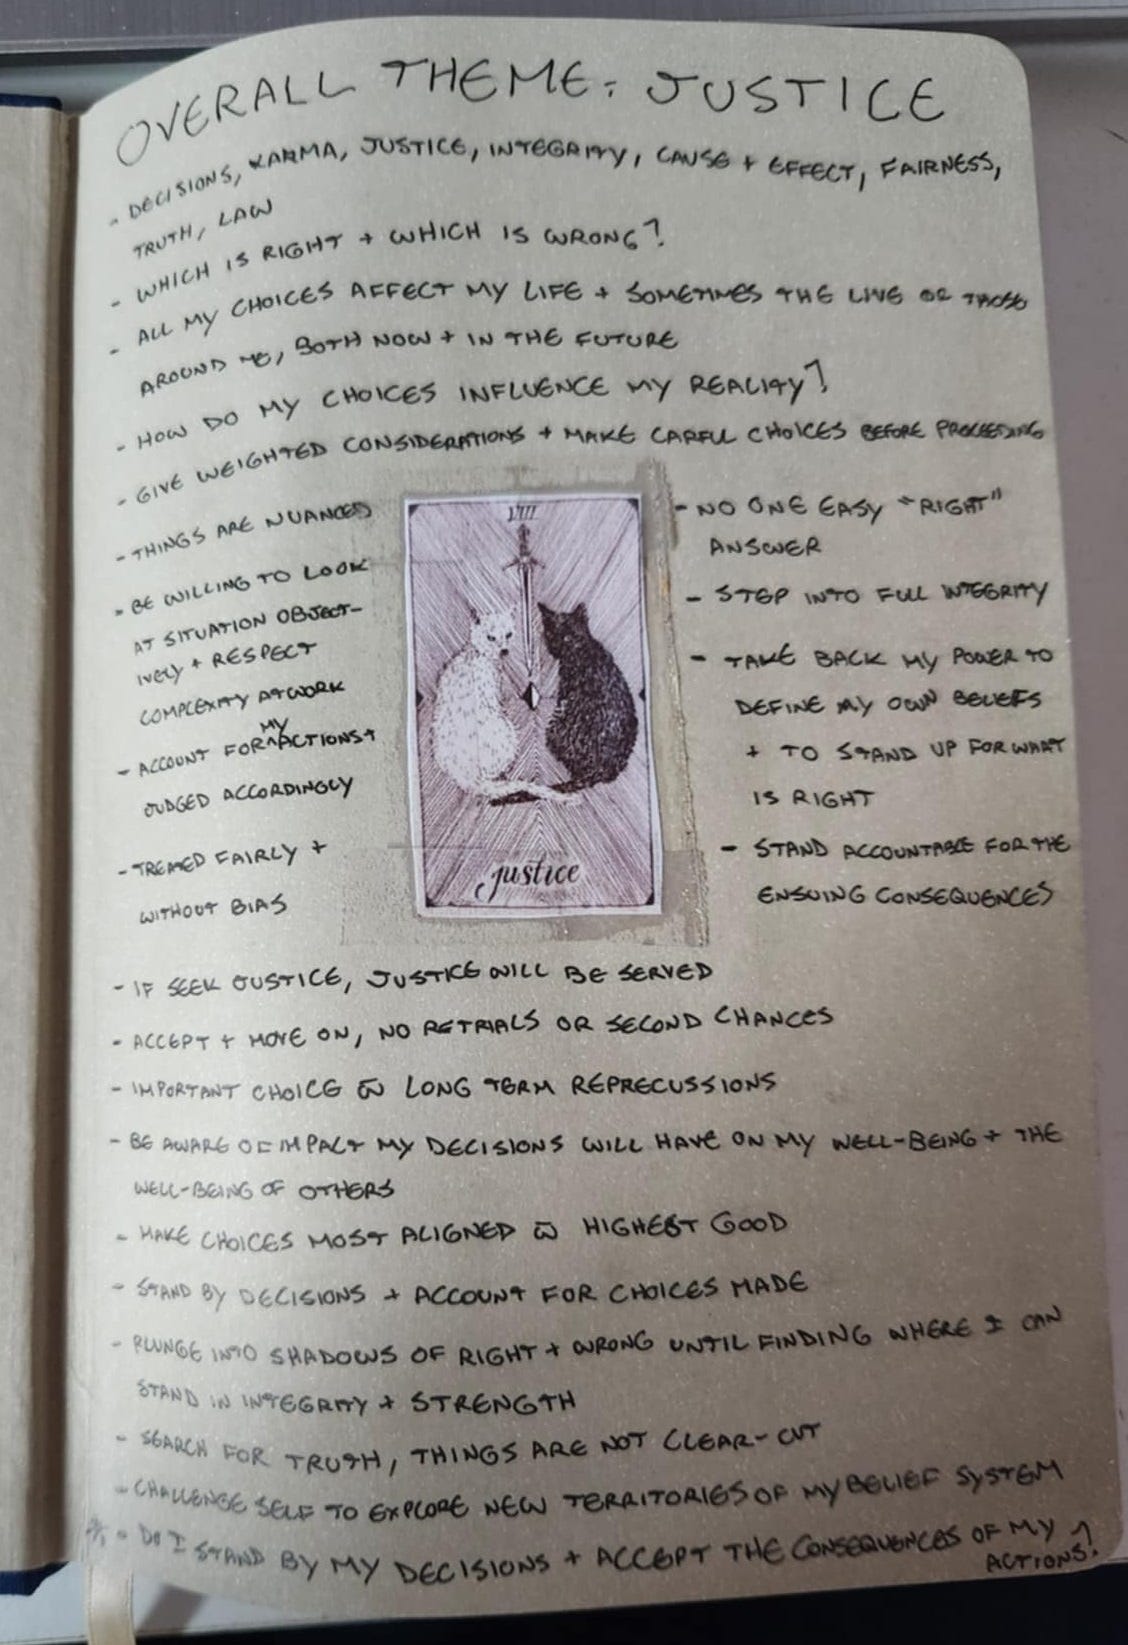 OVERALL THEME: JUSTICE
- DECISIONS, KARMA, JUSTICE, INTEGRITY, CAUSE + EFFECT, FAIRNESS,
TRUTH, LAW
- WHICH IS RIGHT + WHICH IS WRONG?
- ALL MY CHOICES AFFECT MY LIFE + SOMETIMES THE LIVE OF THOSE
AROUND ME, BOTH NOW + IN THE FUTURE
- HOW DO MY CHOICES INFLUENCE MY REALITY?
- GIVE WEIGHTED CONSIDERATIONS + MAKE CARFUL CHOICES BEFORE PROCEEDING
- THINGS ARE NUANCED
- BE WILLING TO LOOK
AT SITUATION OBJECT-
IVELY + RESPECT
COMPLEXITY AT WORK
- ACCOUNT FOR ^MY ACTIONS +
JUDGED ACCORDINGLY
- TREATED FAIRLY +
WITHOUT BIAS
VIII
justice
- NO ONE EASY "RIGHT"
ANSWER
- STEP INTO FULL INTEGRITY
- TAKE BACK MY POWER TO
DEFINE MY OWN BELIEFS
+ TO STAND UP FOR WHAT
IS RIGHT
- STAND ACCOUNTABLE FOR THE
ENSUING CONSEQUENCES
- IF SEEK JUSTICE, JUSTICE WILL BE SERVED
- ACCEPT + MOVE ON, NO RETRIALS OR SECOND CHANCES
- IMPORTANT CHOICE w̅ LONG TERM REPRECUSSIONS
- BE AWARE OF IMPACT MY DECISIONS WILL HAVE ON MY WELL-BEING + THE
WELL-BEING OF OTHERS
- MAKE CHOICES MOST ALIGNED w̅ HIGHEST GOOD
- STAND BY DECISIONS + ACCOUNT FOR CHOICES MADE
- PLUNGE INTO SHADOWS OF RIGHT + WRONG UNTIL FINDING WHERE I CAN
STAND IN INTEGRITY + STRENGTH
- SEARCH FOR TRUTH, THINGS ARE NOT CLEAR-CUT
- CHALLENGE SELF TO EXPLORE NEW TERRITORIES OF MY BELIEF SYSTEM
- DO I STAND BY MY DECISIONS + ACCEPT THE CONSEQUENCES OF MY
ACTIONS?